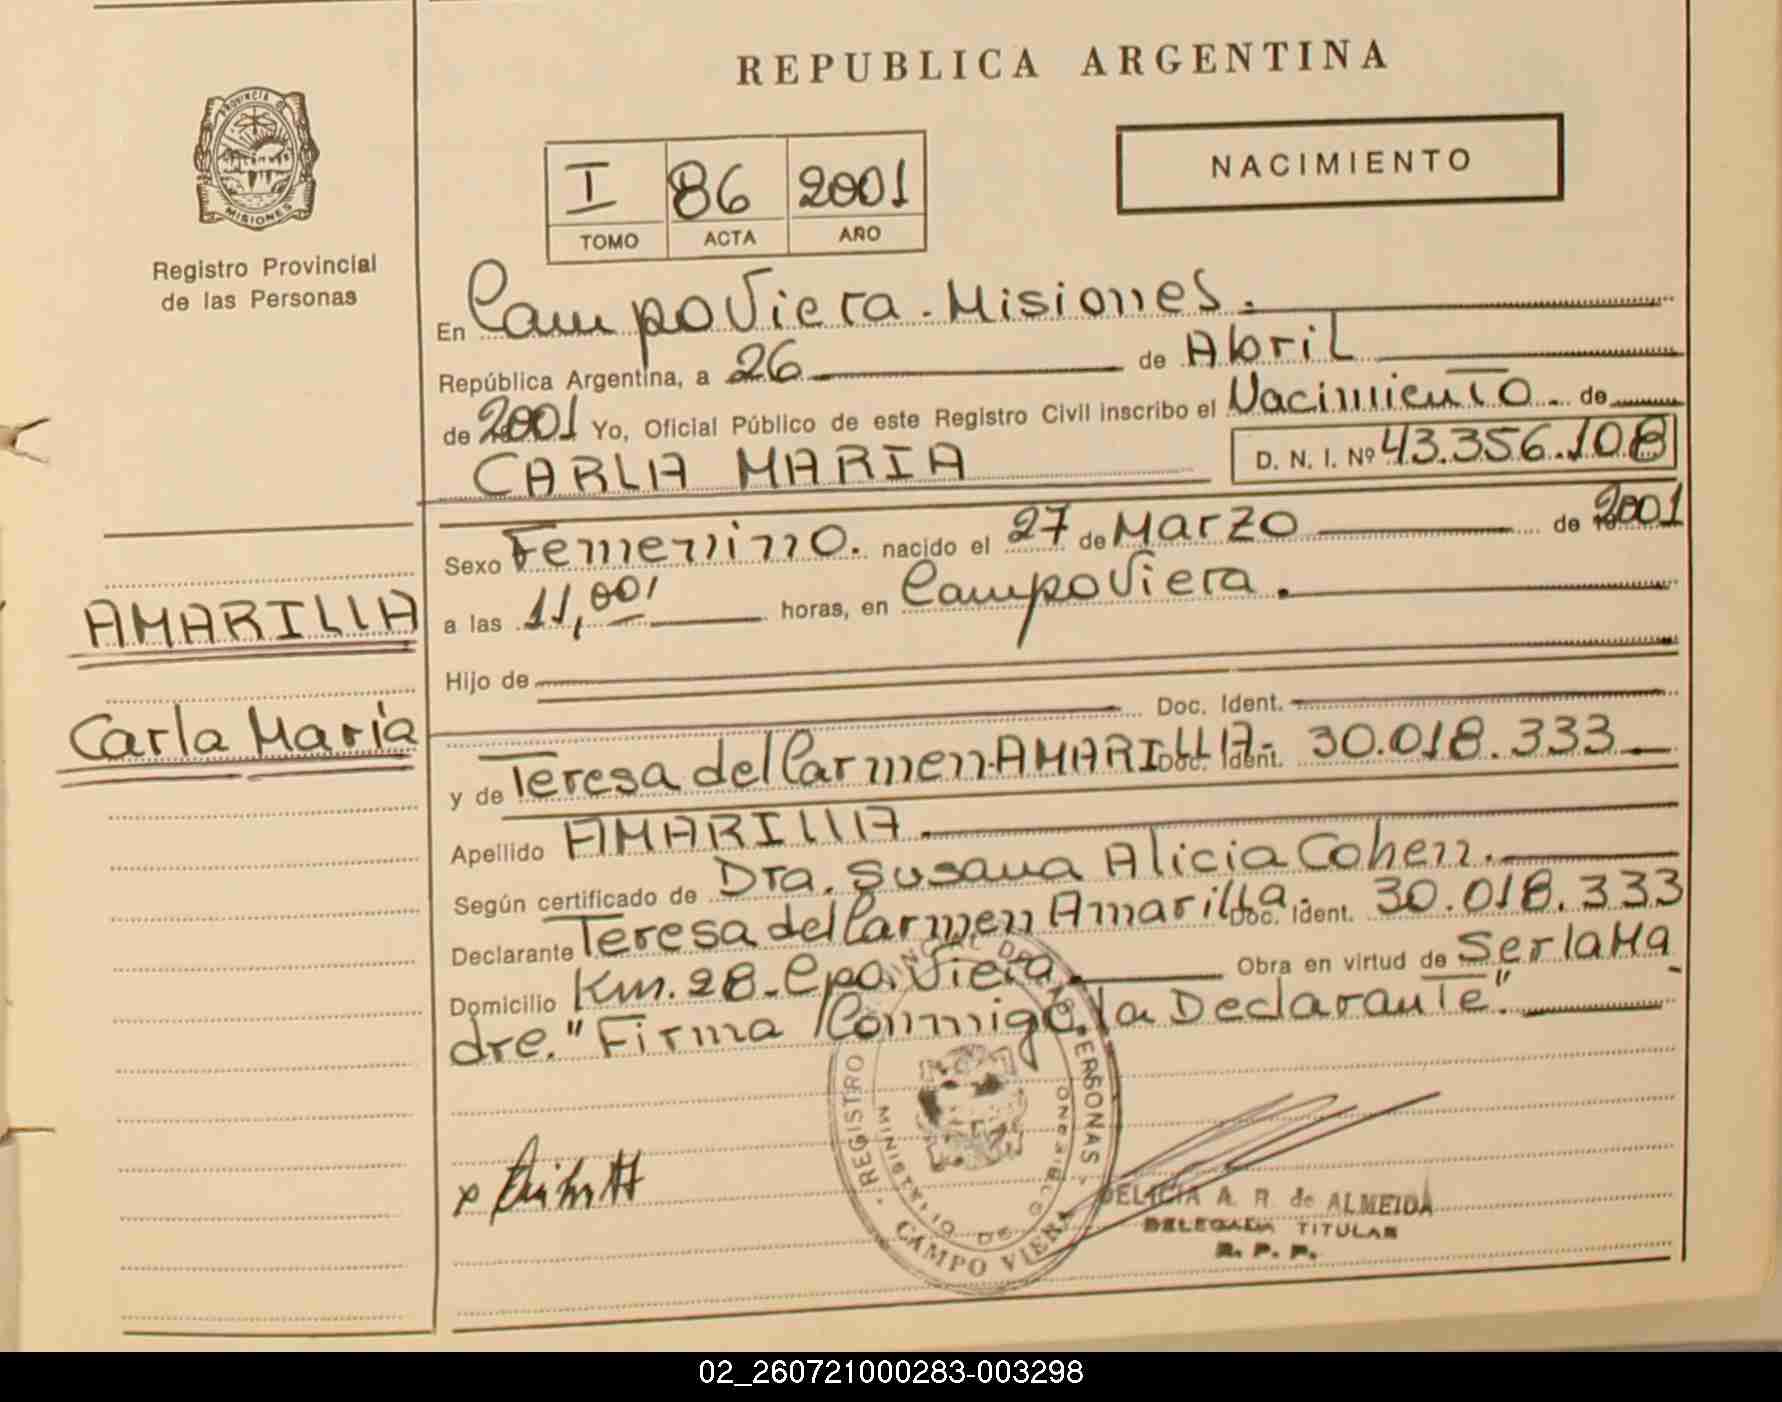 REPUBLICA ARGENTINA
PROVINCIA DE
MISIONES
Registro Provincial
de las Personas
I 86 2001
TOMO ACTA AÑO
NACIMIENTO
En Campo Viera - Misiones.
República Argentina, a 26 de Abril
de 2001 Yo, Oficial Público de este Registro Civil inscribo el Nacimiento. de
CARLA MARIA D. N. I. Nº 43.356.108
Sexo Femenino. nacido el 27 de Marzo de 2001
a las 11,00' horas, en Campo Viera.
Hijo de
Doc. Ident.
y de Teresa del Carmen AMARILLA- Doc. Ident. 30.018.333
Apellido AMARILLA.
Según certificado de Dra. Susana Alicia Cohen.
Declarante Teresa del Carmen Amarilla. Doc. Ident. 30.018.333
Domicilio Km. 28 - Cpo. Viera. Obra en virtud de Ser la Ma
dre. "Firma Conmigo la Declarante".
AMARILLA
Carla María
REGISTRO PROVINCIAL DE LAS PERSONAS
MINISTERIO DE GOBIERNO
CAMPO VIERA
DELICIA A. R. de ALMEIDA
DELEGADA TITULAR
R. P. P.
02_260721000283-003298